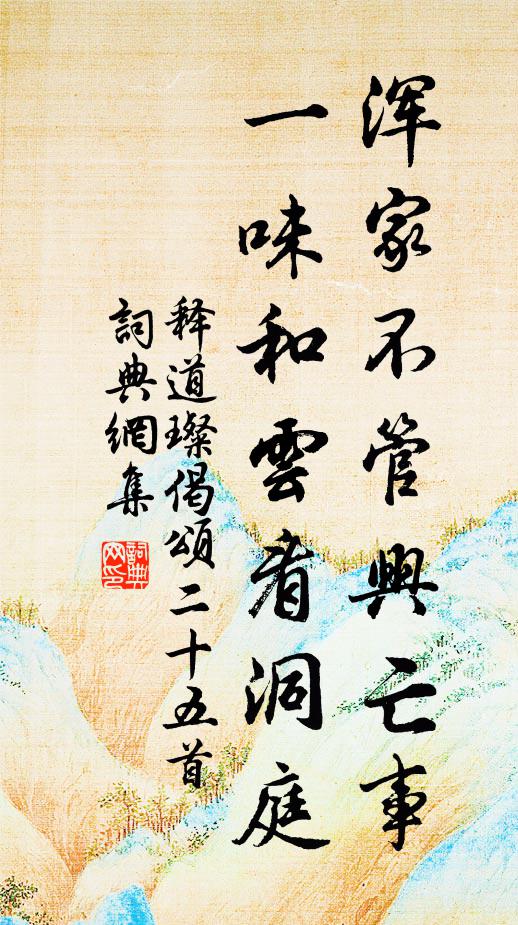 浑家不管興亡事
一味和雲看洞庭
释道璨偈頌二十五首
詞典網集
詞典网印